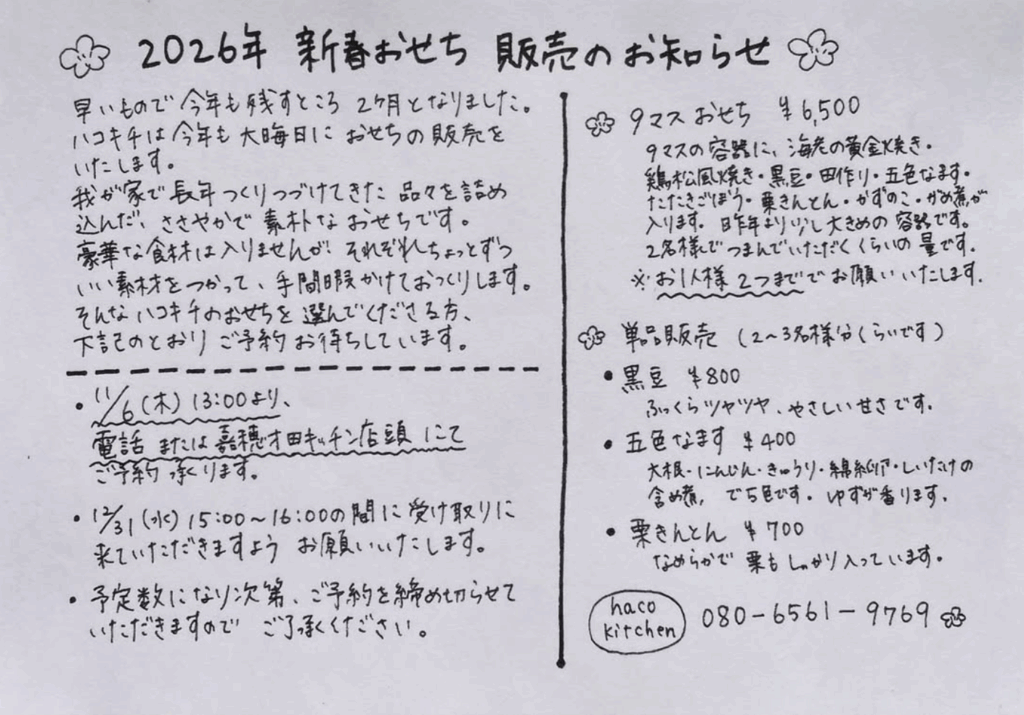 2026年 新春おせち 販売のお知らせ
早いもので 今年も残すところ 2ヶ月となりました。
ハコキチは今年も 大晦日に おせちの販売を
いたします。
我が家で長年つくりつづけてきた 品々を詰め
込んだ、ささやかで 素朴な おせちです。
豪華な食材は入りませんが、それぞれちょっとずつ
いい素材をつかって、手間暇かけておつくりします。
そんなハコキチのおせちを 選んでくださる方、
下記のとおり ご予約お待ちしています。
・11/6(木) 13:00より、
電話 または 嘉穂才田キッチン店頭 にて
ご予約 承ります。
・12/31(水) 15:00〜16:00の間に受け取りに
来ていただきますよう お願いいたします。
・予定数になり次第、ご予約を締め切らせて
いただきますので ご了承ください。
9マスおせち ¥6,500
9マスの容器に、海老の黄金焼き・
鶏松風焼き・黒豆・田作り・五色なます・
たたきごぼう・栗きんとん・かずのこ・がめ煮が
入ります。昨年より少し大きめの容器です。
2名様でつまんでいただくくらいの量です。
※お1人様 2つまででお願いいたします。
単品販売 (2〜3名様分くらいです)
・黒豆 ¥800
ふっくらツヤツヤ、やさしい甘さです。
・五色なます ¥400
大根・にんじん・きゅうり・錦糸卵・しいたけの
含め煮、で5色です。ゆずが香ります。
・栗きんとん ¥700
なめらかで 栗もしっかり入っています。
haco
kitchen
080-6561-9769